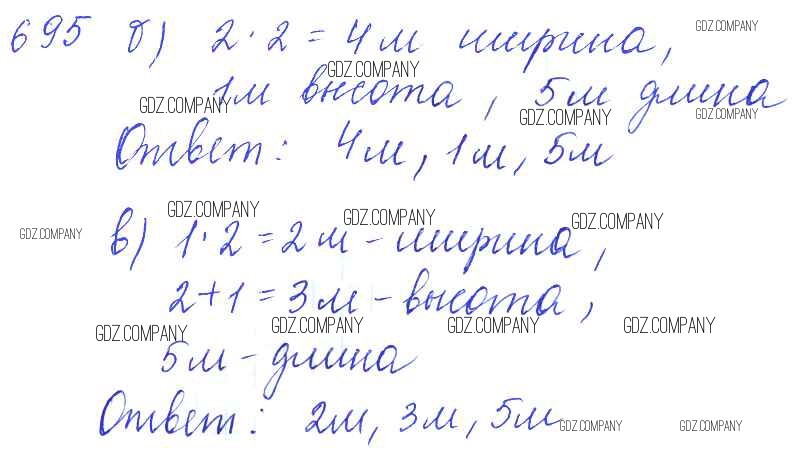 695 б) 2·2=4м ширина,
GDZ.COMPANY
GDZ.COMPANY
1м высота, 5м длина
GDZ.COMPANY
GDZ.COMPANY
GDZ.COMPANY
Ответ: 4м, 1м, 5м
GDZ.COMPANY
GDZ.COMPANY
GDZ.COMPANY
GDZ.COMPANY
в) 1·2=2м - ширина,
2+1=3м - высота,
GDZ.COMPANY
GDZ.COMPANY
GDZ.COMPANY
GDZ.COMPANY
5м - длина
Ответ: 2м, 3м, 5м
GDZ.COMPANY
GDZ.COMPANY